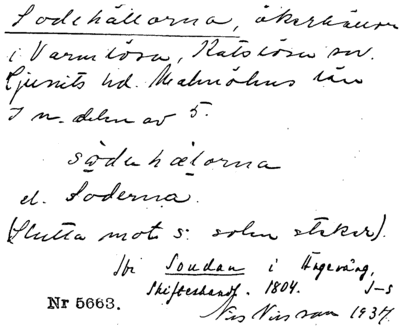 Sodehällorna, åkerhällor
i Varmlösa, Katslösa sn.
Ljunits hd. Malmöhus län
I n. delen av 5.
södehælorna
el. Soderna.
(Slutta mot s: solen steker).
Jfr Soudan i
Skifteshandl. 1804. J-s
Nr 5663. Nils Nilsson 1937.